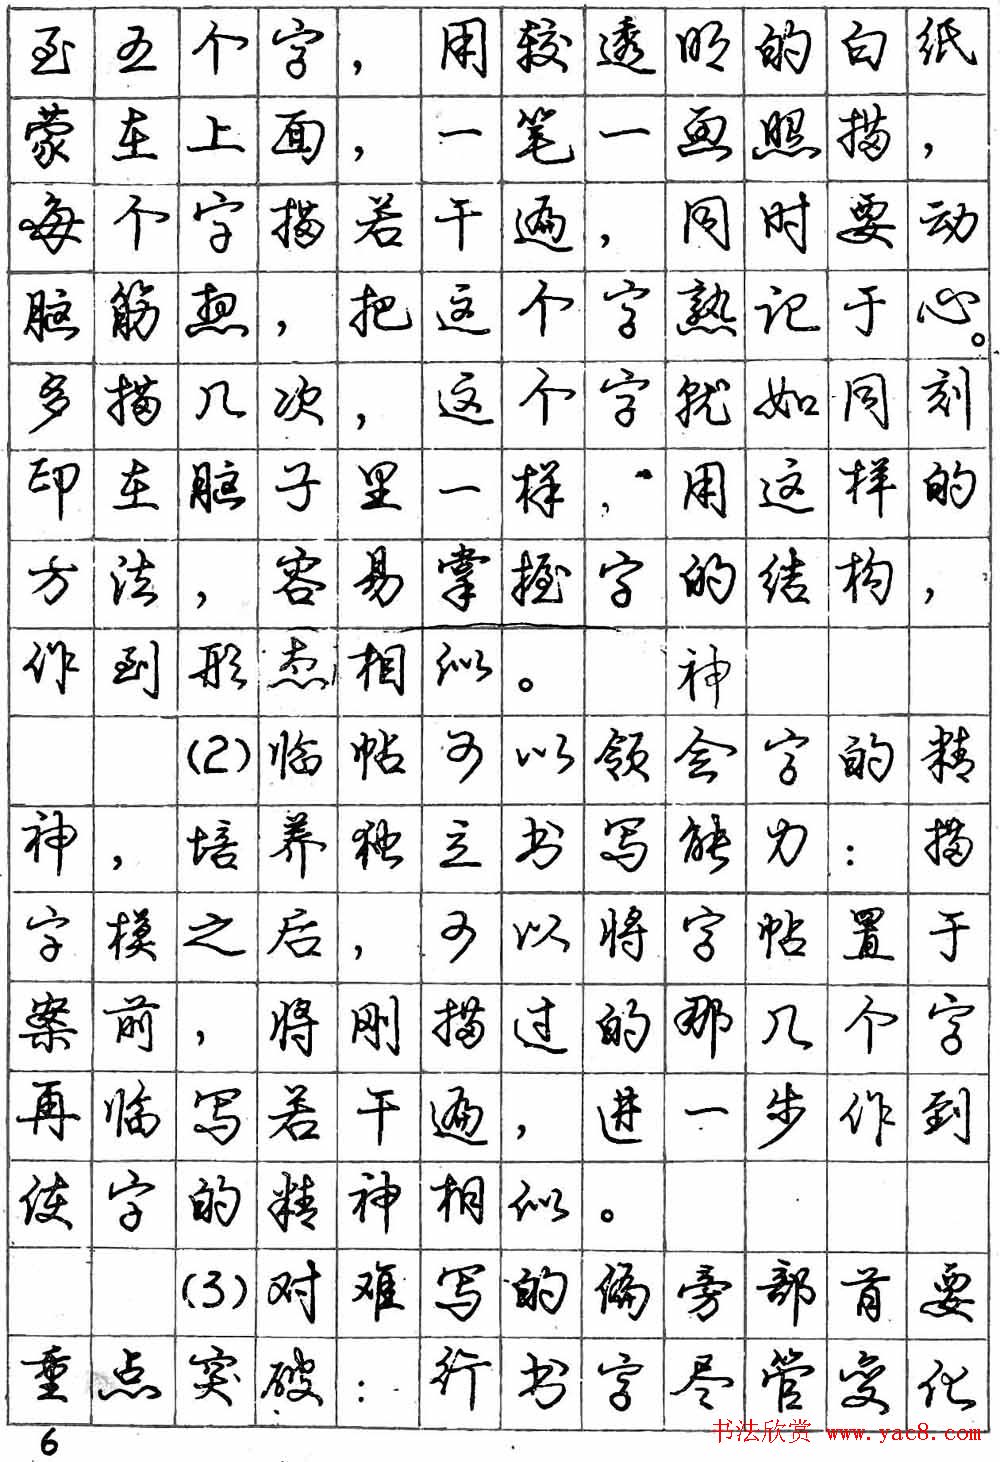 至五个字，用较透明的白纸
蒙在上面，一笔一画照描，
每个字描若干遍，同时要动
脑筋想，把这个字熟记于心。
多描几次，这个字就如同刻
印在脑子里一样，用这样的
方法，容易掌握字的结构，
作到形态相似。 神
(2)临帖可以领会字的精
神，培养独立书写能力：描
字模之后，可以将字帖置于
案前，将刚描过的那几个字
再临写若干遍，进一步作到
使字的精神相似。
(3)对难写的偏旁部首要
重点突破：行书字尽管变化
书法欣赏 www.yac8.com
6